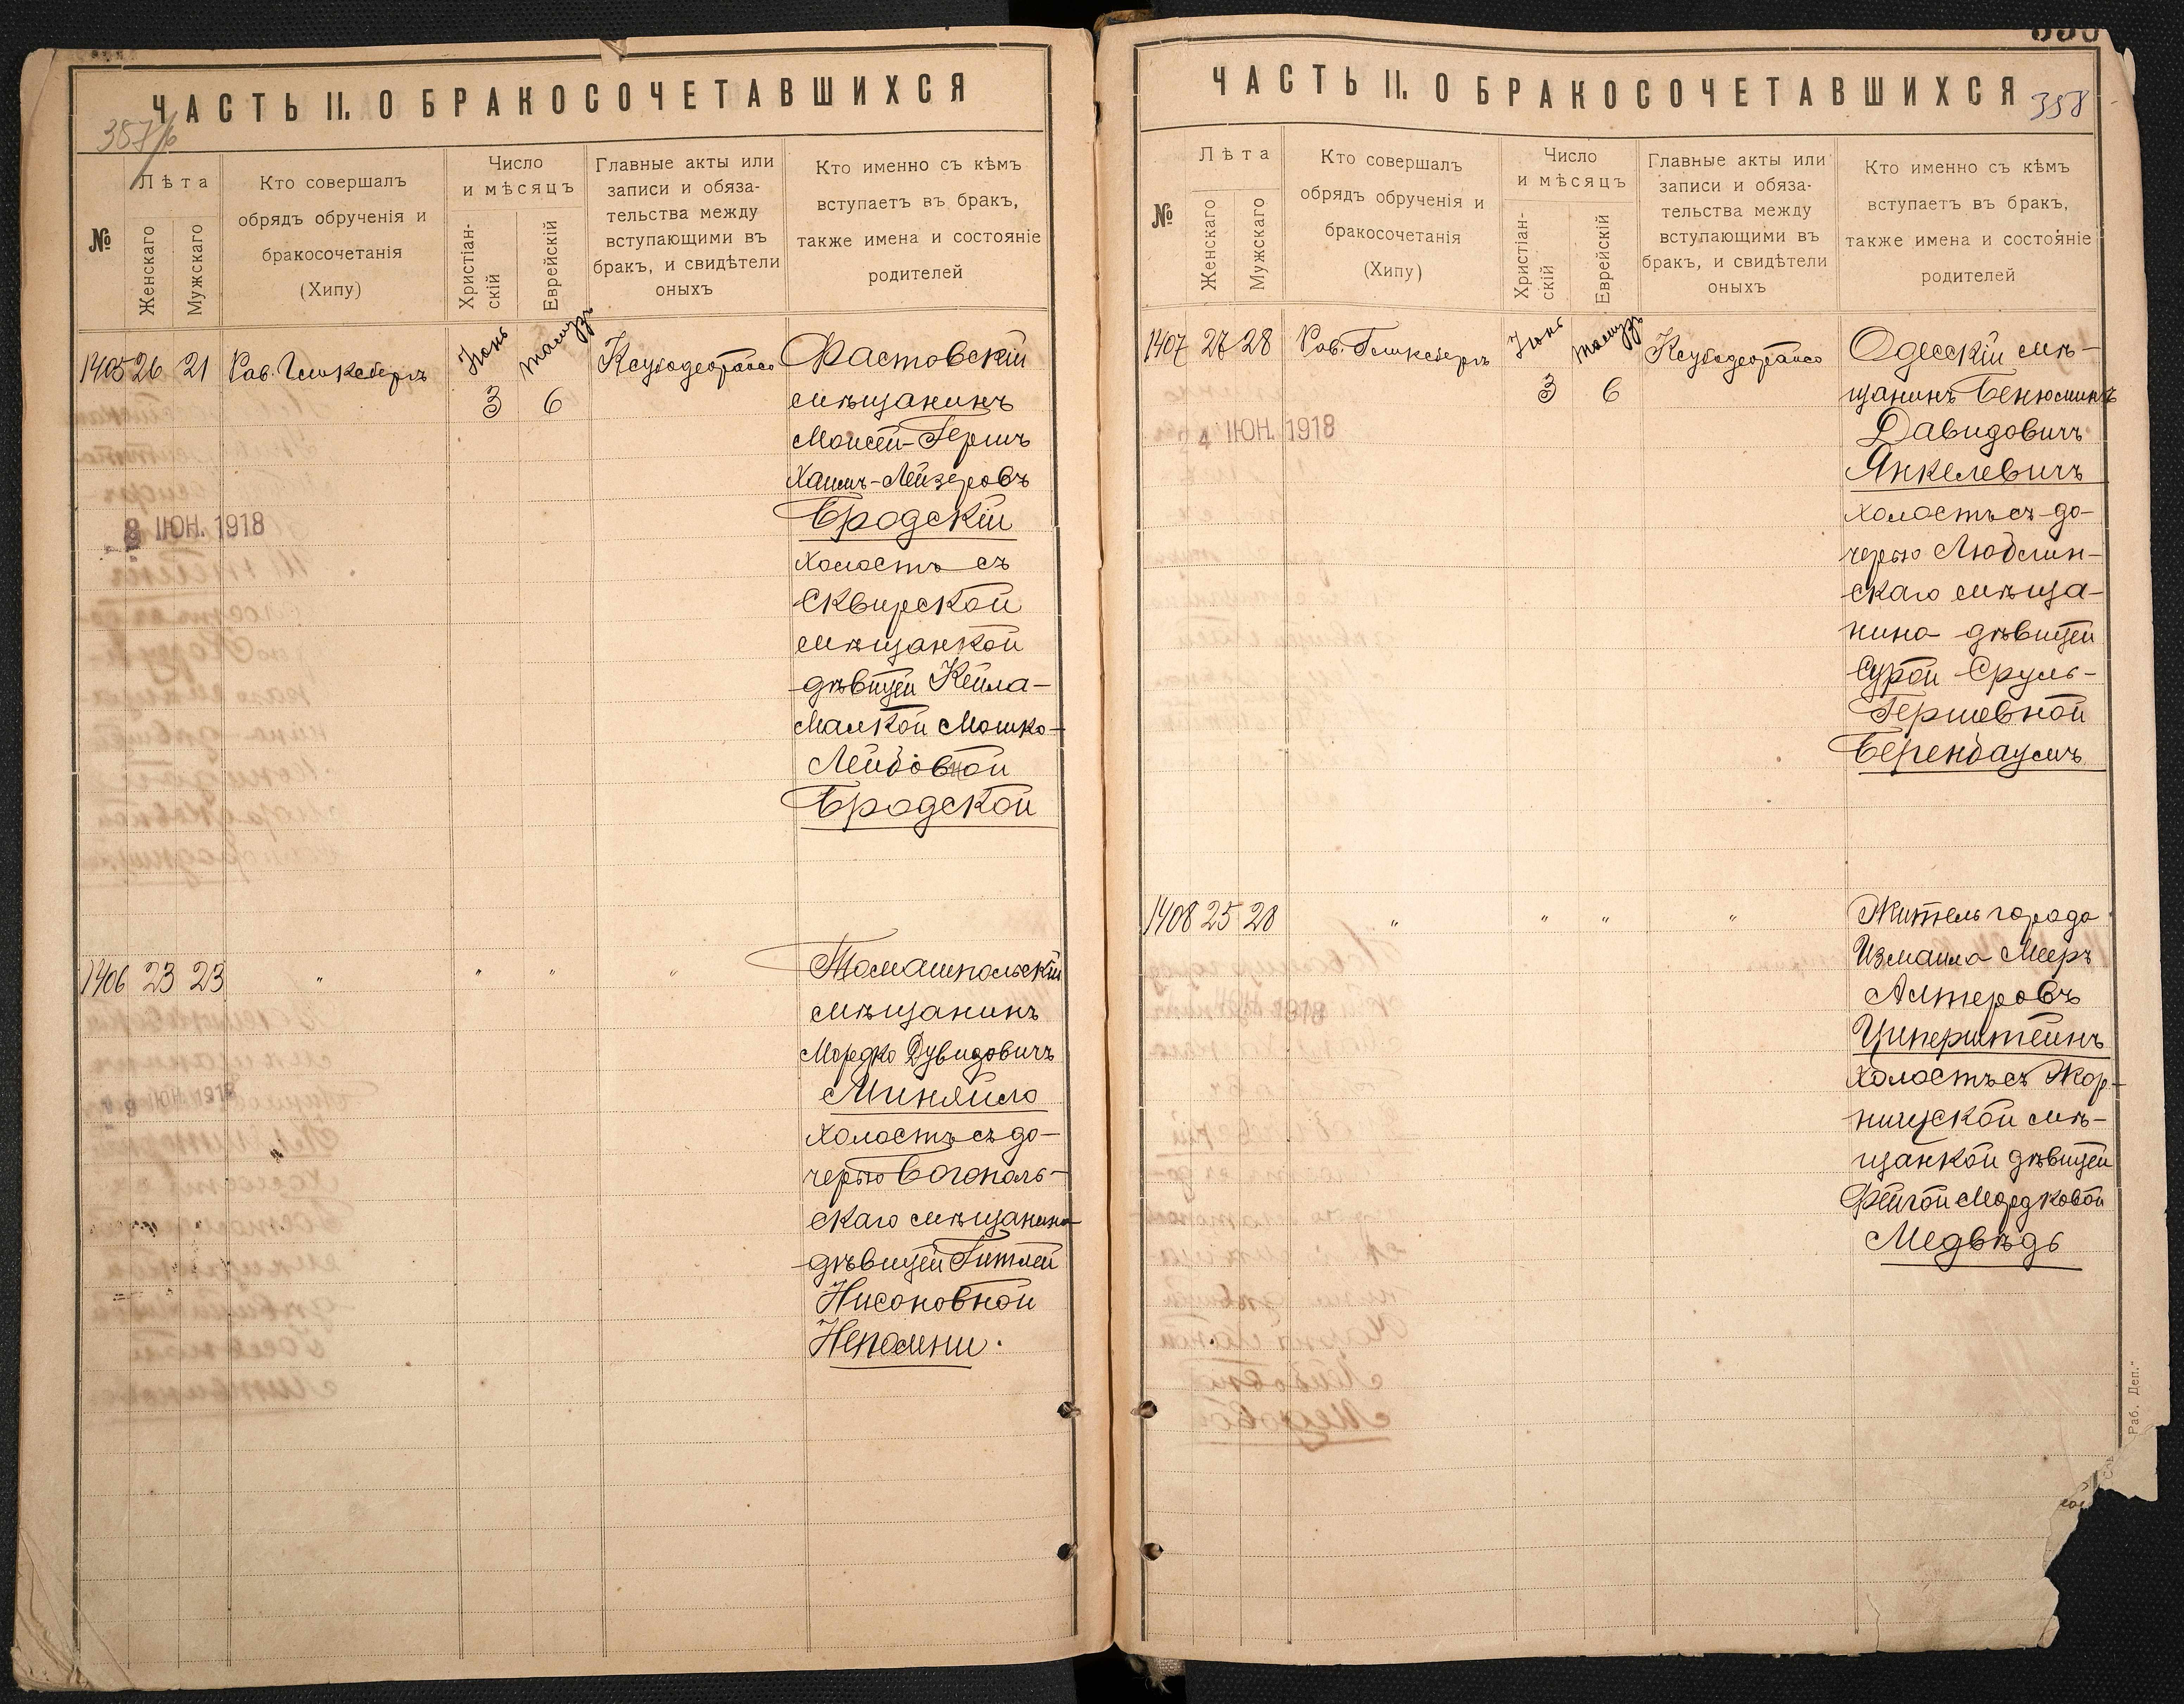 ЧАСТЬ II. О БРАКОСОЧЕТАВШИХСЯ
357/б
№
Лѣта
Женскаго
Мужскаго
Кто совершалъ
обрядъ обрученія и
бракосочетанія
(Хипу)
Число
и мѣсяцъ
Христіан-
скій
Еврейскій
Главные акты или
записи и обяза-
тельства между
вступающими въ
бракъ, и свидѣтели
оныхъ
Кто именно съ кѣмъ
вступаетъ въ бракъ,
также имена и состояніе
родителей
1405 26 21
Іюнь
3
6
Фастовскій
мѣщанинъ
Моисей-Гершъ
Хаимъ-Лейзеровъ
Бродскій
холостъ съ
Сквирской
мѣщанкой
дѣвицей Кейла-
Малкой Мошко-
Лейбовной
Бродской
8 ІЮН. 1918
1406 23 23 " " " "
Томашпольскій
мѣщанинъ
Мордко Дувидовичъ
Миняйло
холостъ съ до-
черью Богополь-
скаго мѣщанина
дѣвицей Гитлей
Нисоновной
Непомни.
ЧАСТЬ II. О БРАКОСОЧЕТАВШИХСЯ
358
№
Лѣта
Женскаго
Мужскаго
Кто совершалъ
обрядъ обрученія и
бракосочетанія
(Хипу)
Число
и мѣсяцъ
Христіан-
скій
Еврейскій
Главные акты или
записи и обяза-
тельства между
вступающими въ
бракъ, и свидѣтели
оныхъ
Кто именно съ кѣмъ
вступаетъ въ бракъ,
также имена и состояніе
родителей
1407 27 28
Іюнь
3
6
4 ІЮН. 1918
Одесскій мѣ-
щанинъ Бенюминъ
Давидовичъ
Янкелевичъ
холостъ съ до-
черью Люблин-
скаго мѣща-
нина дѣвицей
Сурой Сруль-
Гершевной
Беренбаумъ
1408 25 28 " " " "
Житель города
Измаила Мееръ
Алтеровъ
Ципернштейнъ
холостъ съ Жор-
нищской мѣ-
щанкой дѣвицей
Фейгой Мордковой
Медвѣдь
Раб. Деп."